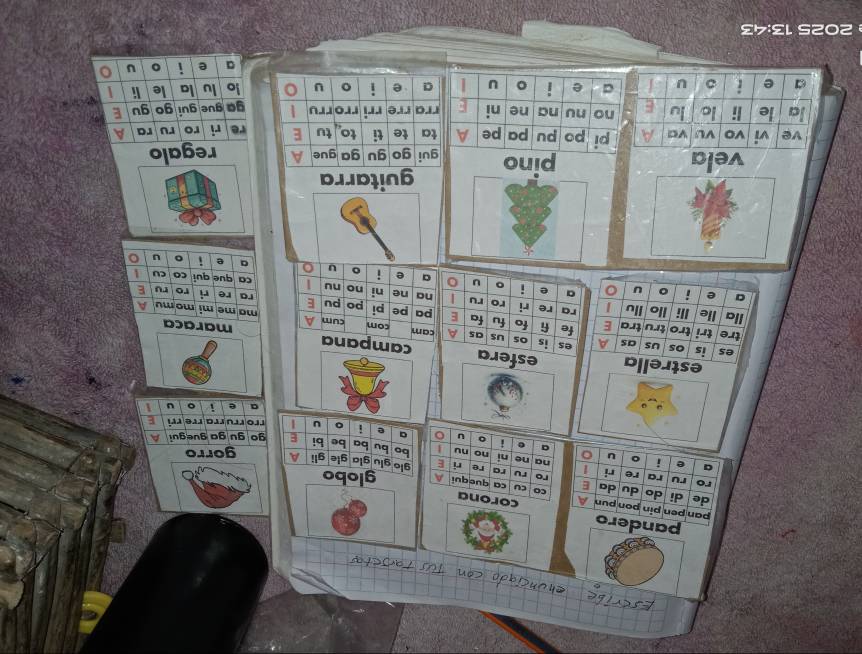 Escribe enunciado con tus tarjetas
pandero
pan pen pin pon pun A
de di do du da E
ro ru ra re ri I
a e i o u O
corona
co cu ca que qui A
ro ru ra re ri E
na ne ni no nu I
a e i o u O
globo
glo glu gla gle gli A
bo bu ba be bi E
a e i o u I
gorro
go gu ga gue gui A
rro rru rra rre rri E
a e i o u I
estrella
es is os us as A
tre tri tro tru tra E
lla lle lli llo llu I
a e i o u O
esfera
es is os us as A
fe fi fo fu fa E
ra re ri ro ru I
a e i o u O
campana
cam com cum A
pa pe pi po pu E
na ne ni no nu I
a e i o u O
maraca
ma me mi mo mu A
ra re ri ro ru E
ca que qui co cu I
a e i o u O
vela
ve vi vo vu va A
la le li lo lu E
a e i o u I
pino
pi po pu pa pe A
no nu na ne ni E
a e i o u I
guitarra
gui go gu ga gue A
ta te ti to tu E
rra rre rri rro rru I
a e i o u O
regalo
re ri ro ru ra A
ga gue gui go gu E
lo lu la le li I
a e i o u O
2025 13:43